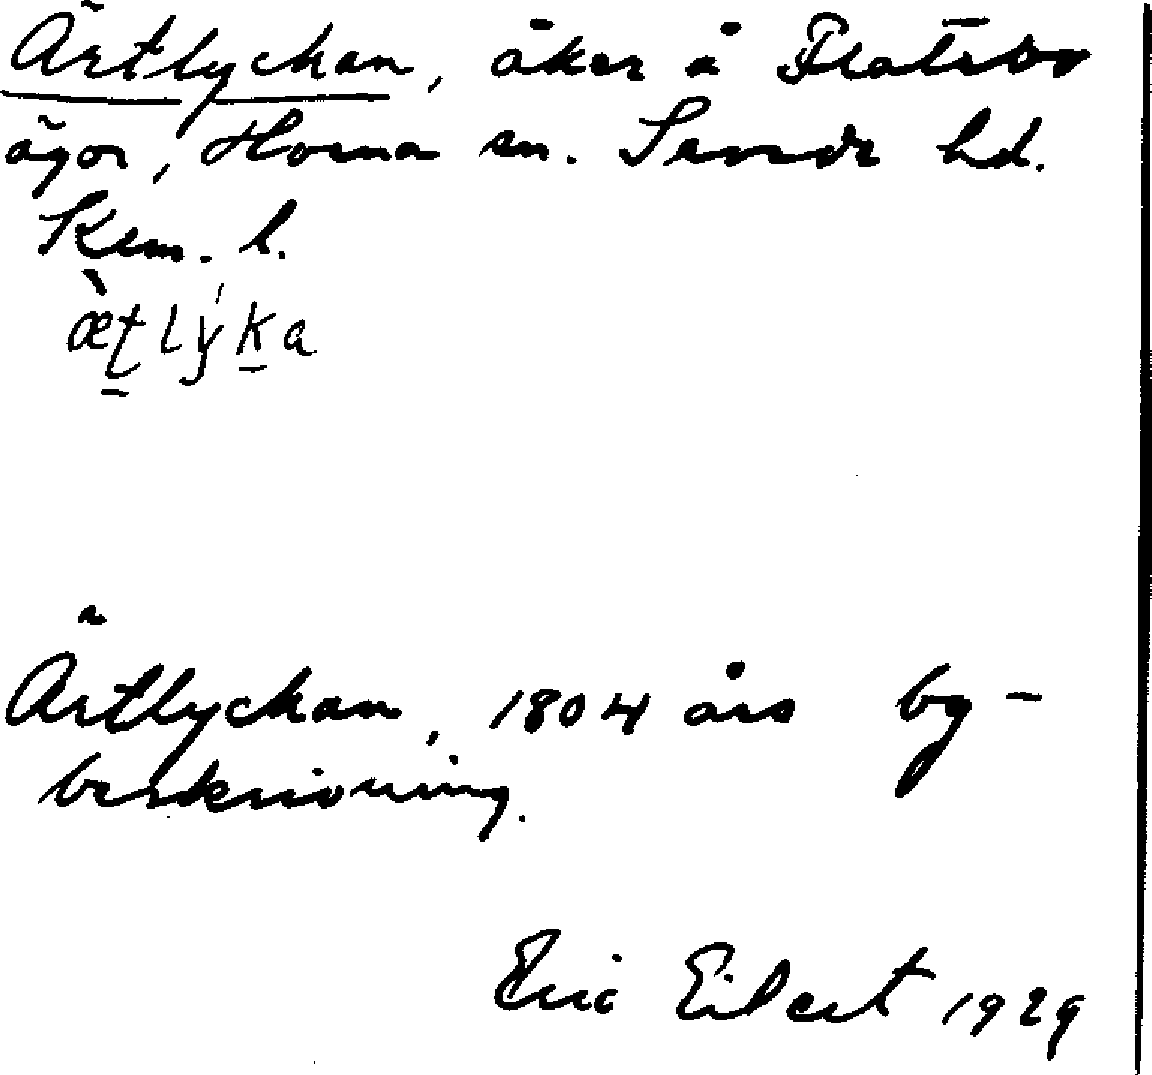 Ärtlyckan, åker å Flatebo
ägor, Horna sn. Sevede hd.
Kem. l.
æ̀ṯlýḵa
Ärtlyckan, 1804 års by-
beskrivning.
Eric Eilert 1929